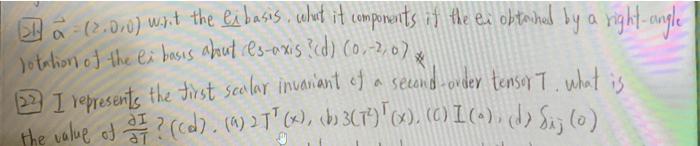 21 a⃗ = (2,0,0) w.r.t the ei basis. what it components if the ei obtained by a right-angle
rotation of the ei basis about e3-axis? (d) (0,-2,0) *
22 I represents the first scalar invariant of a second-order tensor T. what is
the value of ∂I/∂T ? (d). (a) 2T^T (x), (b) 3(T²)^T (x). (c) I (o), (d) δij (o)